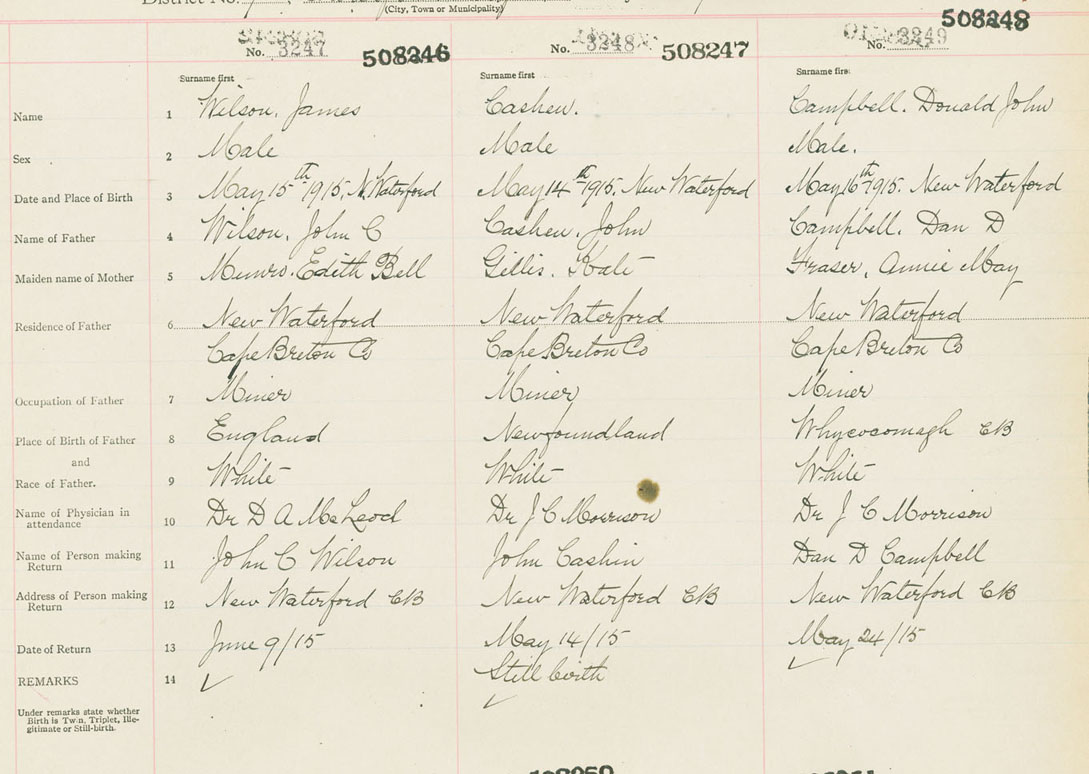 District No.
(City, Town or Municipality)
No. 3247 508246
No. 3248 508247
No. 3249 508248
Surname first Surname first Surname firs
Name 1 Wilson, James Cashen. Campbell. Donald John
Sex 2 Male Male Male.
Date and Place of Birth 3 May 15th 1915, N. Waterford May 14th 1915. New Waterford May 16th 1915. New Waterford
Name of Father 4 Wilson, John C Cashen. John Campbell. Dan D
Maiden name of Mother 5 Munro. Edith Bell Gillis. Kate Fraser, Annie May
Residence of Father 6 New Waterford New Waterford New Waterford
Cape Breton Co Cape Breton Co Cape Breton Co
Occupation of Father 7 Miner Miner Miner
Place of Birth of Father 8 England Newfoundland Whycocomagh CB
and
Race of Father. 9 White White White
Name of Physician in attendance 10 Dr D A McLeod Dr J C Morrison Dr J C Morrison
Name of Person making Return 11 John C Wilson John Cashin Dan D Campbell
Address of Person making Return 12 New Waterford CB New Waterford CB New Waterford CB
Date of Return 13 June 9/15 May 14/15 May 24/15
REMARKS 14 ✓ Still birth ✓
✓
Under remarks state whether
Birth is Twin, Triplet, Ille-
gitimate or Still-birth.